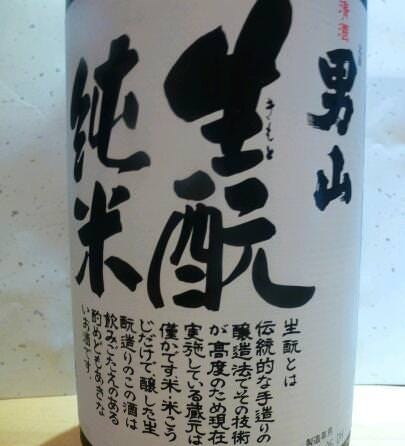 清酒
男山
生酛
きもと
純米
生酛とは
伝統的な手造りの
醸造法でその技術
が高度のため現在
実施している蔵元は
僅かです米・米こう
じだけで醸した生
酛造りのこの酒は
飲みごたえのある
酌めどもあきな
いお酒です。
製造年月